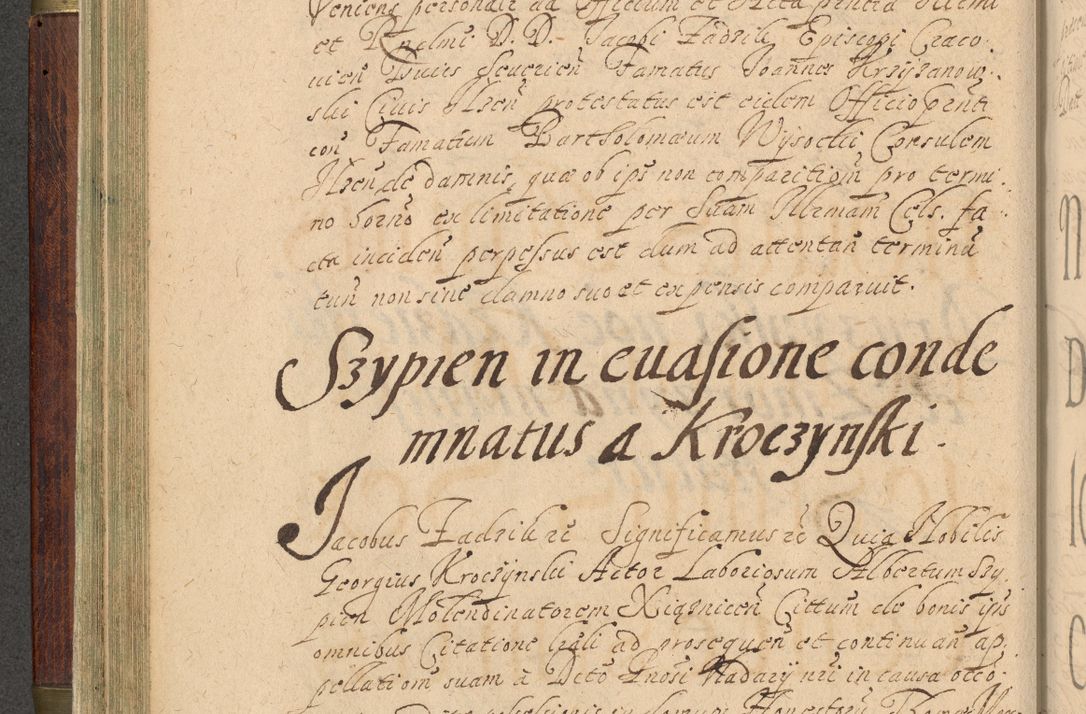 Veniens personali ad Officium et Acta
et Rndmi D. D. Jacobi Zadzik Episcopi Craco.
uien Ducis Seuerien Famatus Joannes Krzyzanow.
ski Ciuis Ilzen protestatus est eidem Officio pznti
con Famatum Bartholomæum Wysocki Consulem
Ilzen de damnis, quæ ob ips non comparitiom pro termi.
no horno ex limitatione per Suam Illrmam Cels. fa
cta inciden perpessus est dum ad attentan terminu
tun non sine damno suo et expensis comparuit.
Szypien in euasione conde
mnatus a Kroczynski.
Jacobus Zadzik zc Significamus zc Quia Nobilis
Georgius Kroczynski Actor Laboriosum Albertum Szy
pien Molendinatorem Xiąznicen Cittum de bonis ips
omnibus Citatione ad prosequen et continuan ap
pellatiom suam à Dcto Gnosi Nadary nri in causa
in domum Honestory